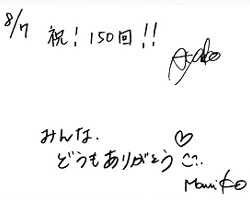 8/7
祝！150回！！
Ayako
みんな、
どうもありがとう♡
Mami Ko